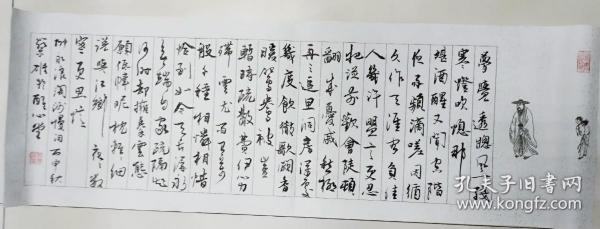 夢覺透牕風一線
寒燈吹熄那
堪酒醒又聞空階
夜雨頻滴嗟因循
久作天涯客負佳
人幾許盟言更忍
把從前歡會陡頓
翻成憂戚愁極
再三追思洞房深處
幾度飲散歌闌香
暖鴛鴦被豈
暫時疏散費伊心力
殢雲尤雨有萬
般千種相憐相惜
恰到如今天長漏永
無端自家疏隔知
何時卻擁秦雲態
願低幃昵枕輕輕細
說與江鄉夜夜數
寒更思憶
柳永浪淘沙慢詞 秋
孔夫子旧书网
www.kongfz.com